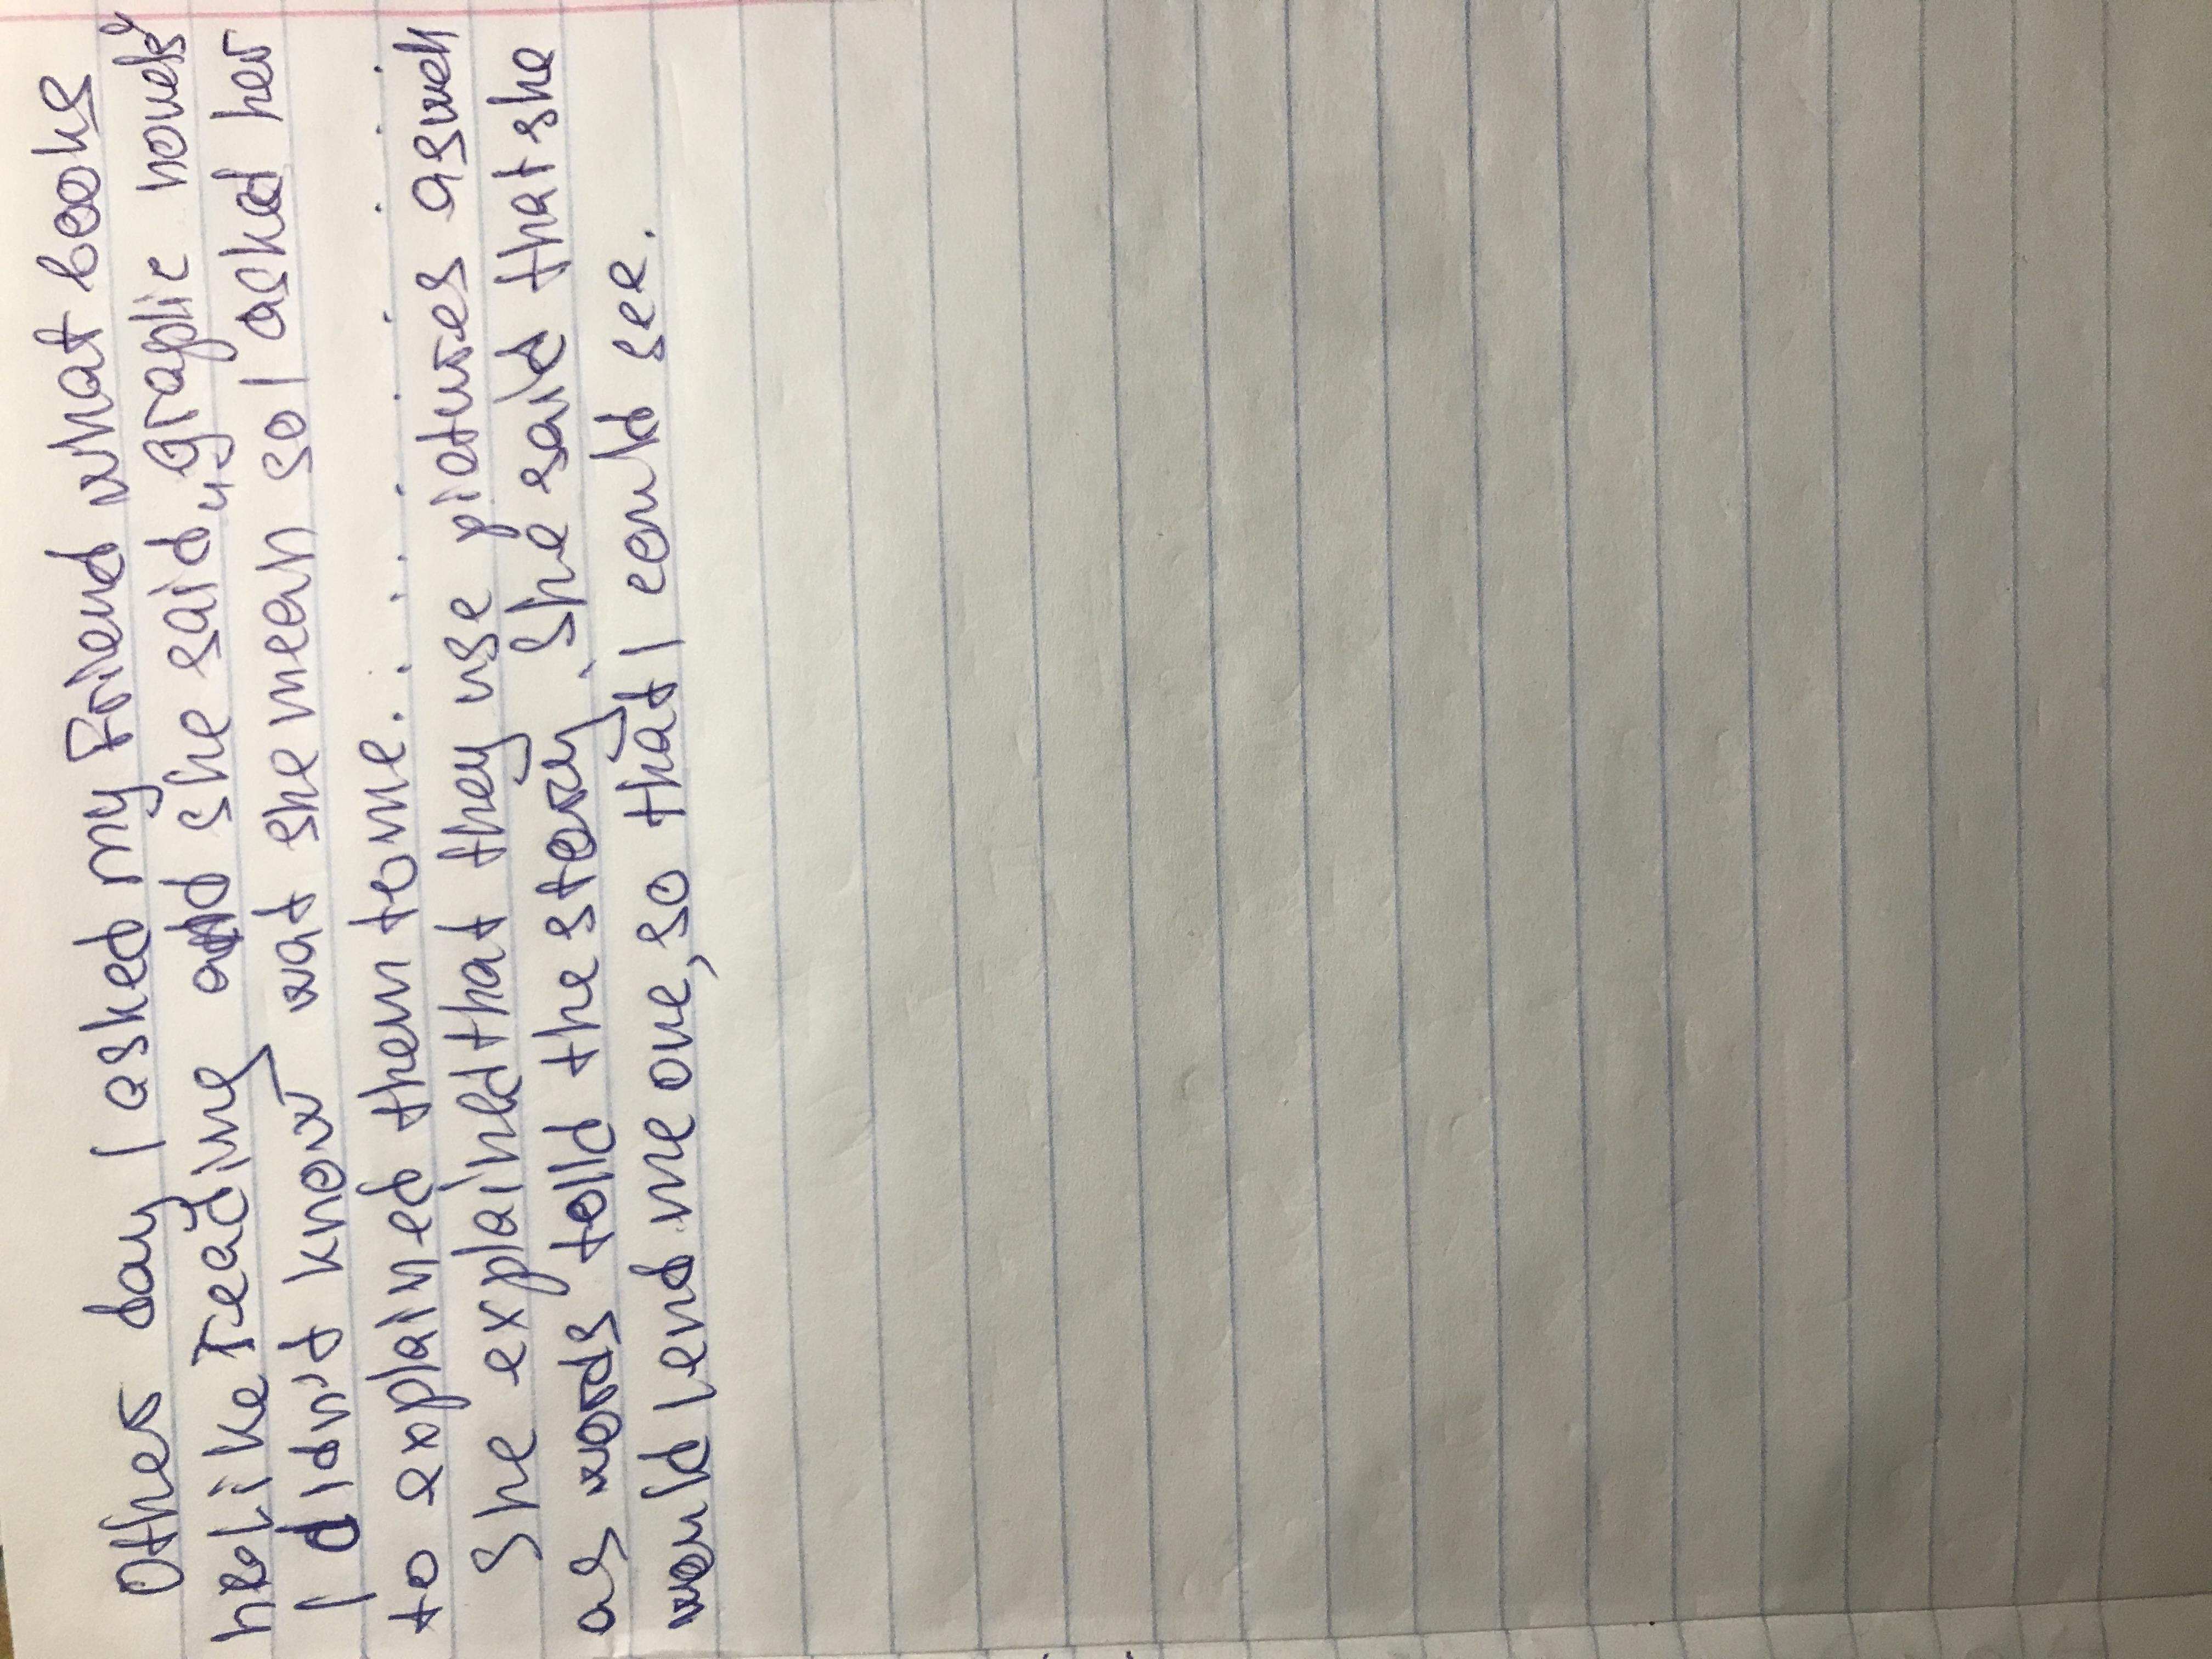 Other day I asked my Friend what books
he like reading and she said „graplic novels”
I didn't know wat she mean so I asked her
to explained them to me. . . . . . . . . .
She explaind that they use pictures as well
as words telld the story. She said that she
would lend me one, so that I could see.